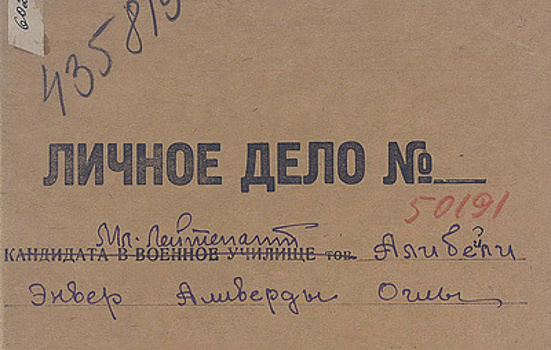 435819
ЛИЧНОЕ ДЕЛО №
50191
Мл. Лейтенант
КАНДИДАТА В ВОЕННОЕ УЧИЛИЩЕ тов. Алибейли
Энвер Аливерды Оглы